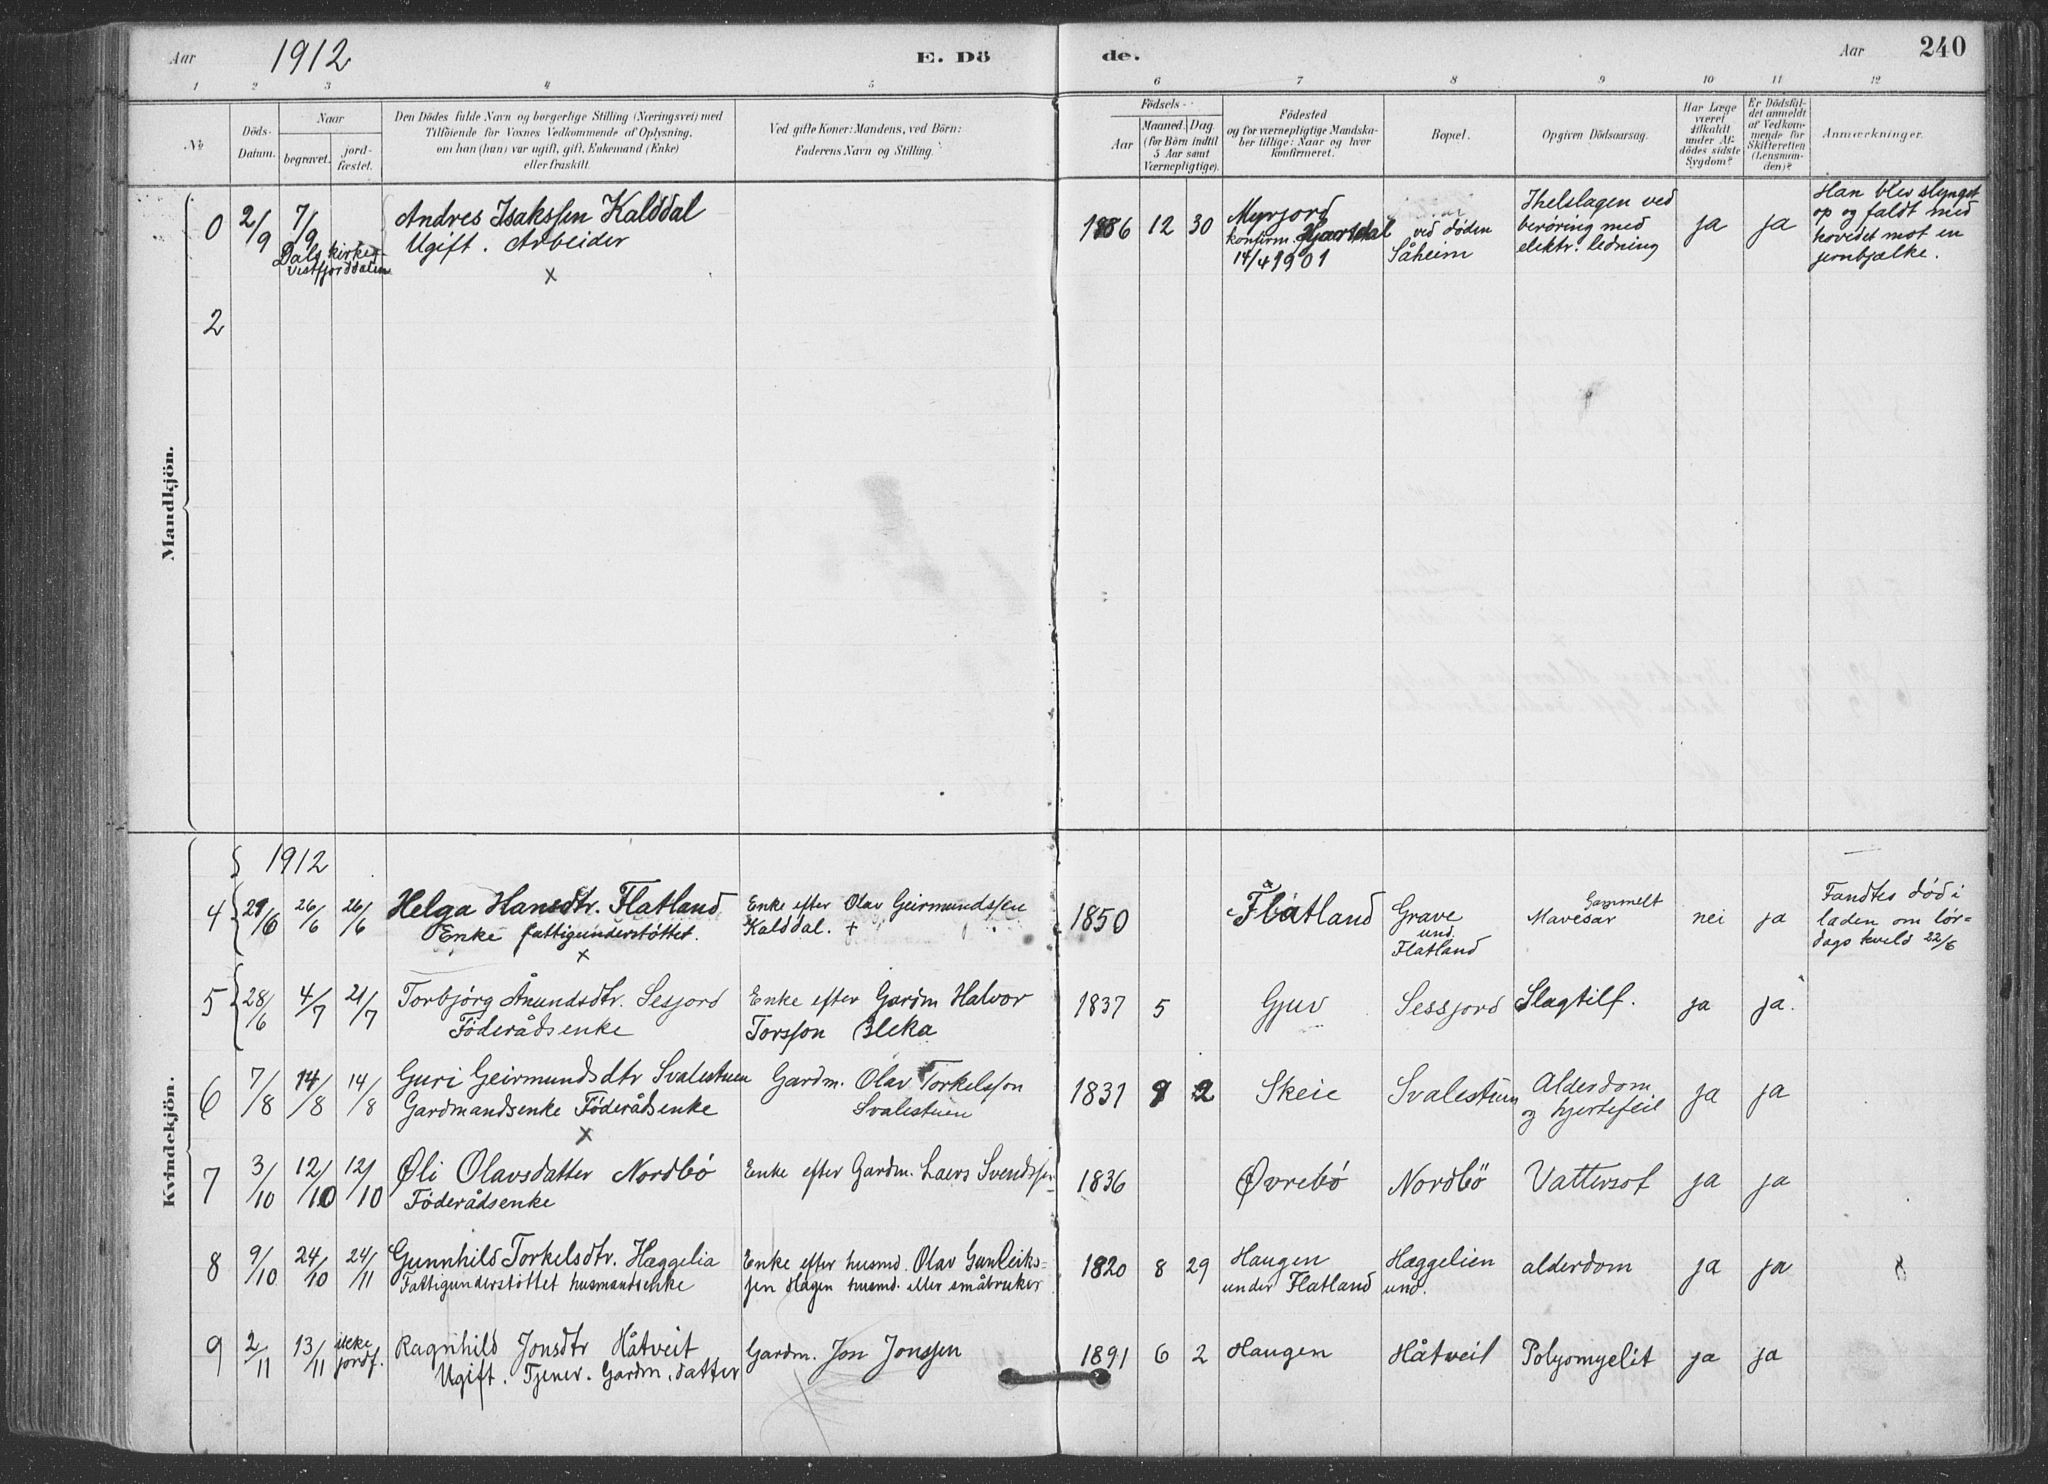 Aar 1912 E. Dö de. Aar 240
1 2 3 4 5 6 7 8 9 10 11 12
№
Döds-
Datum.
Naar
begravet.
jord-
fæstet.
Den Dödes fulde Navn og borgerlige Stilling (Næringsvei) med
Tilföiende for Voxnes Vedkommende af Oplysning,
om han (hun) var ugift, gift, Enkemand (Enke)
eller fraskilt.
Ved gifte Koner: Mandens, ved Börn:
Faderens Navn og Stilling.
Födsels-
Aar
Maaned. Dag
(for Börn indtil
5 Aar samt
Værnepligtige).
Födested
og for værnepligtige Mandska-
ber tillige: Naar og hvor
konfirmeret.
Bopæl.
Opgiven Dödsaarsag.
Har Læge
været
tilkaldt
under Af-
dödes sidste
Sygdom?
Er Dödsfal-
det anmeldt
af Vedkom-
mende for
Skifteretten
(Lensman-
den)?
Anmærkninger.
Mandkjön.
0 2/9 7/9
Dals kirkeg.
vestfjorddalen
Andres Isakssen Kalddal
Ugift. Arbeider
x
1886 12 30
Myrjord
konfirm. Hjartdal
14/4 1901
ved døden
Såheim
Ihelslagen ved
berøring med
elektr. ledning
ja ja
Han blev slynget
op og faldt med
hovedet mot en
jernbjælke.
2
Kvindekjön.
1912
4 21/6 26/6 26/6
Helga Hansdtr. Flatland
Enke fattigunderstøttet.
x
Enke efter Olav Geirmundssen
Kalddal. +
1850
Flåtland
Grave
und.
Flatland
Gammelt
Mavesår
nei ja
Fandtes død i
laden om lør-
dags kveld 22/6
5 28/6 4/7 21/7
Torbjörg Ånundsdtr. Sesjord
Föderådsenke
Enke efter Gardm Halvor
Torsson Bleka
1837 5 Gjuv Sessjord Slagtilf. ja ja.
6 7/8 14/8 14/8
Guri Geirmundsdtr Svalestuen
Gardmandsenke Föderådsenke
x
Gardm. Olav Torkelsson
Svalestuen
1831 9 2 Skeie Svalestuen
Alderdom
og hjertefeil
ja ja
7 3/10 12/10 12/10
Øli Olavsdatter Nordbø
Föderådsenke
Enke efter Gardm. Laers Svendssen
1836 Øvrebö Nordbö Vattersot ja ja
8 9/10 24/10 24/11
Gunnhild Torkelsdtr. Hæggelia
Fattigunderstöttet husmandsenke
Enke efter husmd. Olav Gunleiks-
sen Hagen husmd. eller småbruker
1820 8 29
Haugen
under Flatland
Hæggelien
und.
alderdom ja ja
9 2/11 13/11
ikke
jordf.
Ragnhild Jonsdtr Håtveit
Ugift. Tjener. Gardm. datter
Gardm. Jon Jonssen
1891 6 2 Haugen Håtveit Polyomyelit ja ja